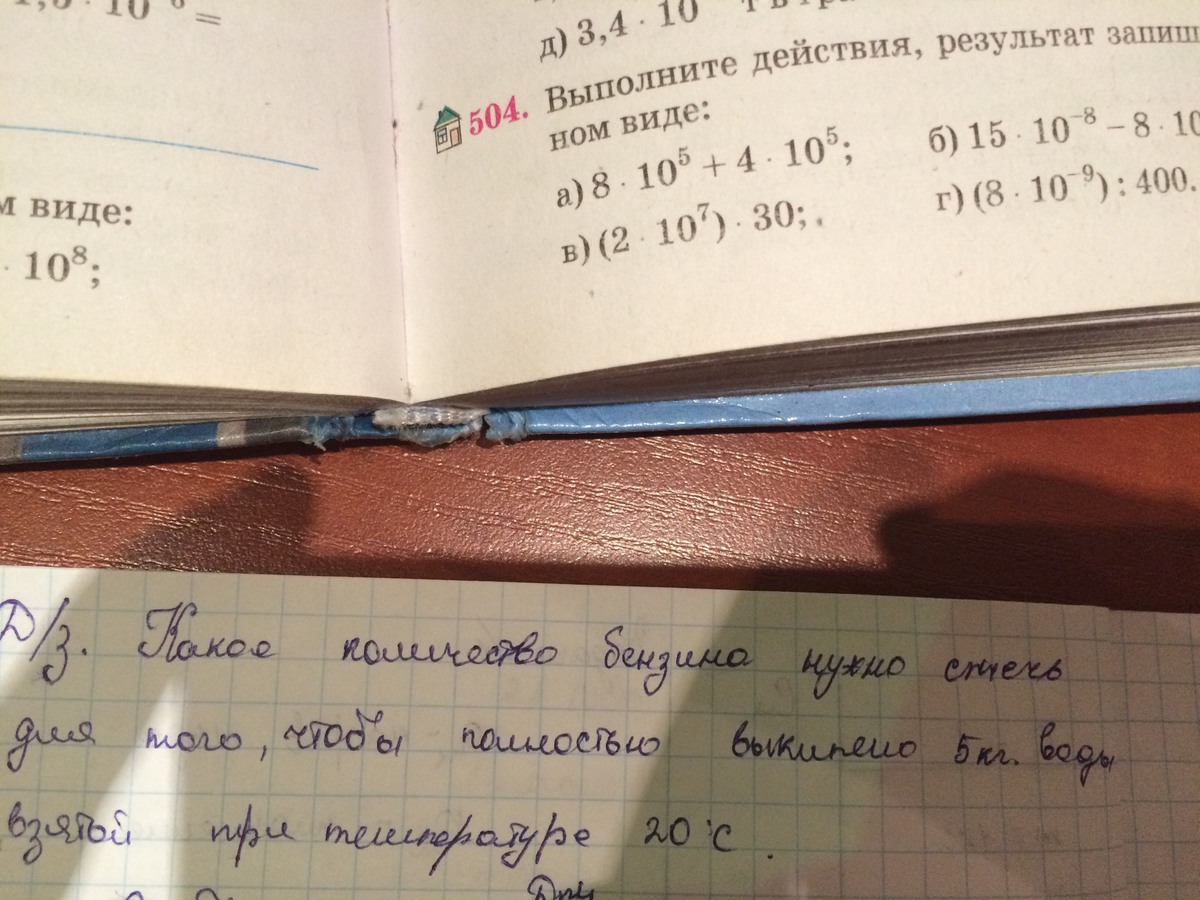 · 10⁻⁶ =
м виде:
· 10⁸;
д) 3,4 · 10
504. Выполните действия, результат запиш
ном виде:
а) 8 · 10⁵ + 4 · 10⁵; б) 15 · 10⁻⁸ – 8 · 10
в) (2 · 10⁷) · 30; г) (8 · 10⁻⁹) : 400.
Д/з. Какое количество бензина нужно сжечь
для того, чтобы полностью выкипело 5 кг. воды
взятой при температуре 20°С.